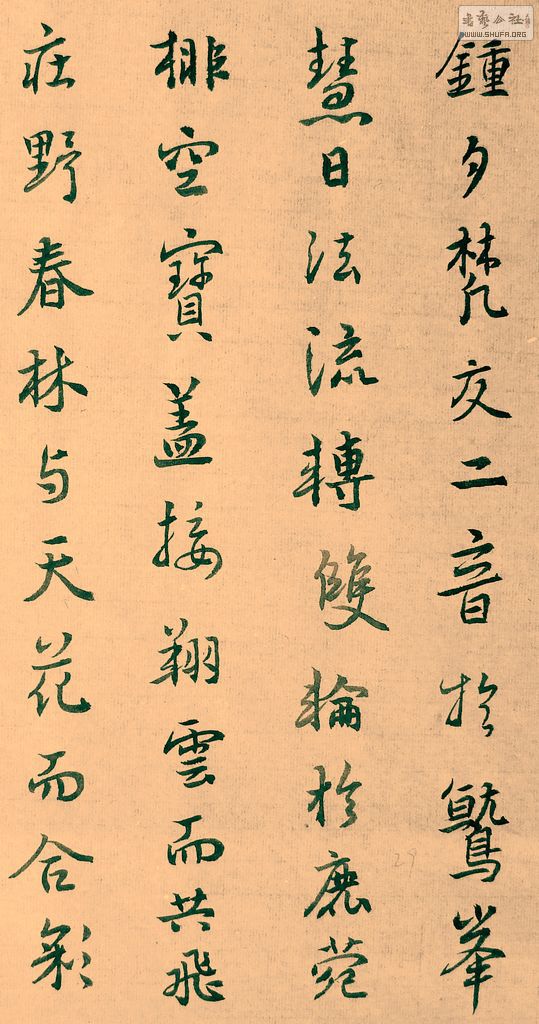 鍾夕梵交二音於鷲峯
慧日法流轉雙輪於鹿菀
排空寶盖接翔雲而共飛
莊野春林与天花而合彩
書藝公社
WWW.SHUFA.ORG
29